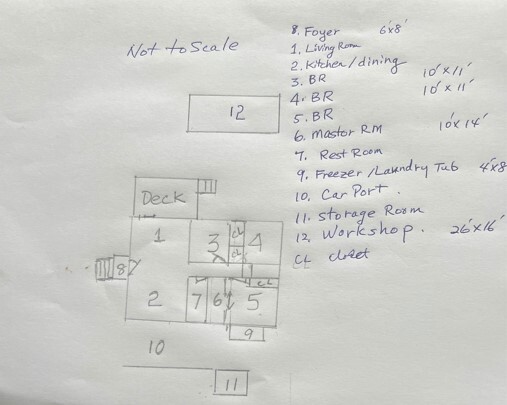 Not to Scale
8. Foyer 6'x8'
1. Living Room
2. Kitchen/dining
3. BR 10'x11'
4. BR 10'x11'
5. BR
6. Mastor RM 10'x14'
7. Rest Room
9. Freezer/Laundry Tub 4'x8
10. Car Port.
11. Storage Room
12. Workshop. 26'x16'
CL closet
12
Deck
1
3
CL
4
CL
8
CL
2
7
6
5
9
10
11